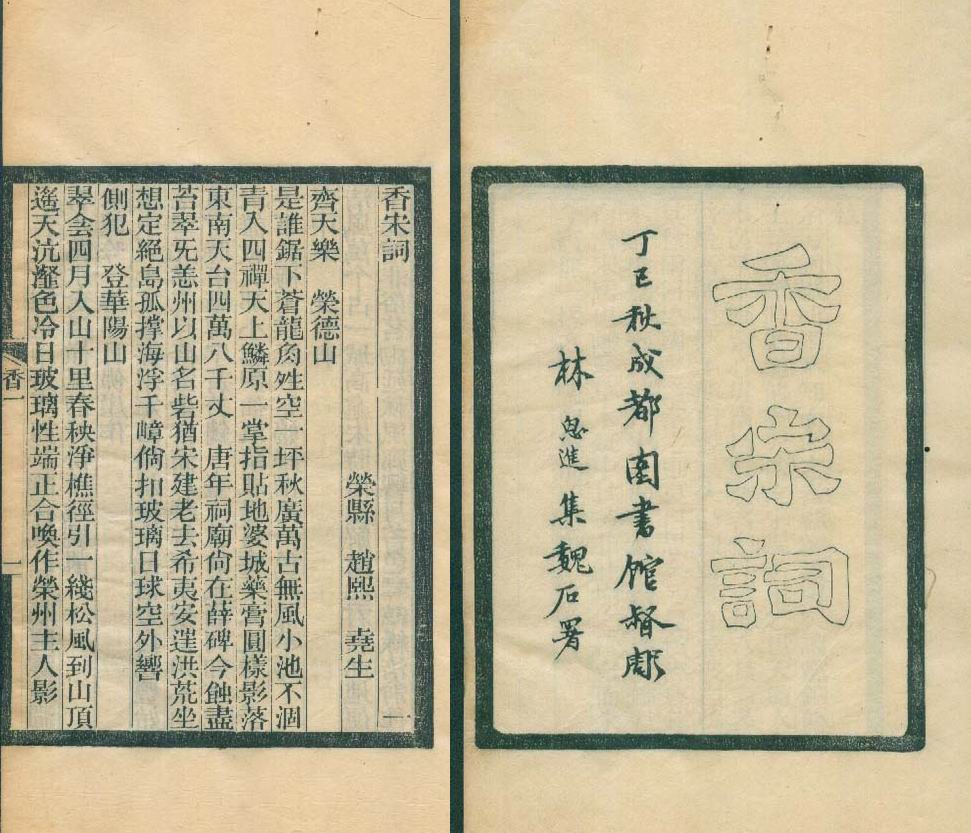 香宋詞
丁巳秋成都圖書館督彫
林思進集魏石署
香宋詞 一
榮縣 趙熙 堯生
齊天樂 榮德山
是誰鋸下蒼龍角姓空一坪秋廣萬古無風小池不涸
青入四禪天上鱗原一掌指貼地婆城藥膏圓樣影落
東南天台四萬八千丈 唐年祠廟尙在薛碑今蝕盡
苔翠旡恙州以山名砦猶宋建老去希夷安𨓏洪荒坐
想定絕島孤撑海浮千嶂倘扣玻璃日球空外響
側犯 登華陽山
翠侌四月入山十里春秧淨樵徑引一綫松風到山頂
遙天沆瀣色冷日玻璃性端正合喚作榮州主人影
香一
一